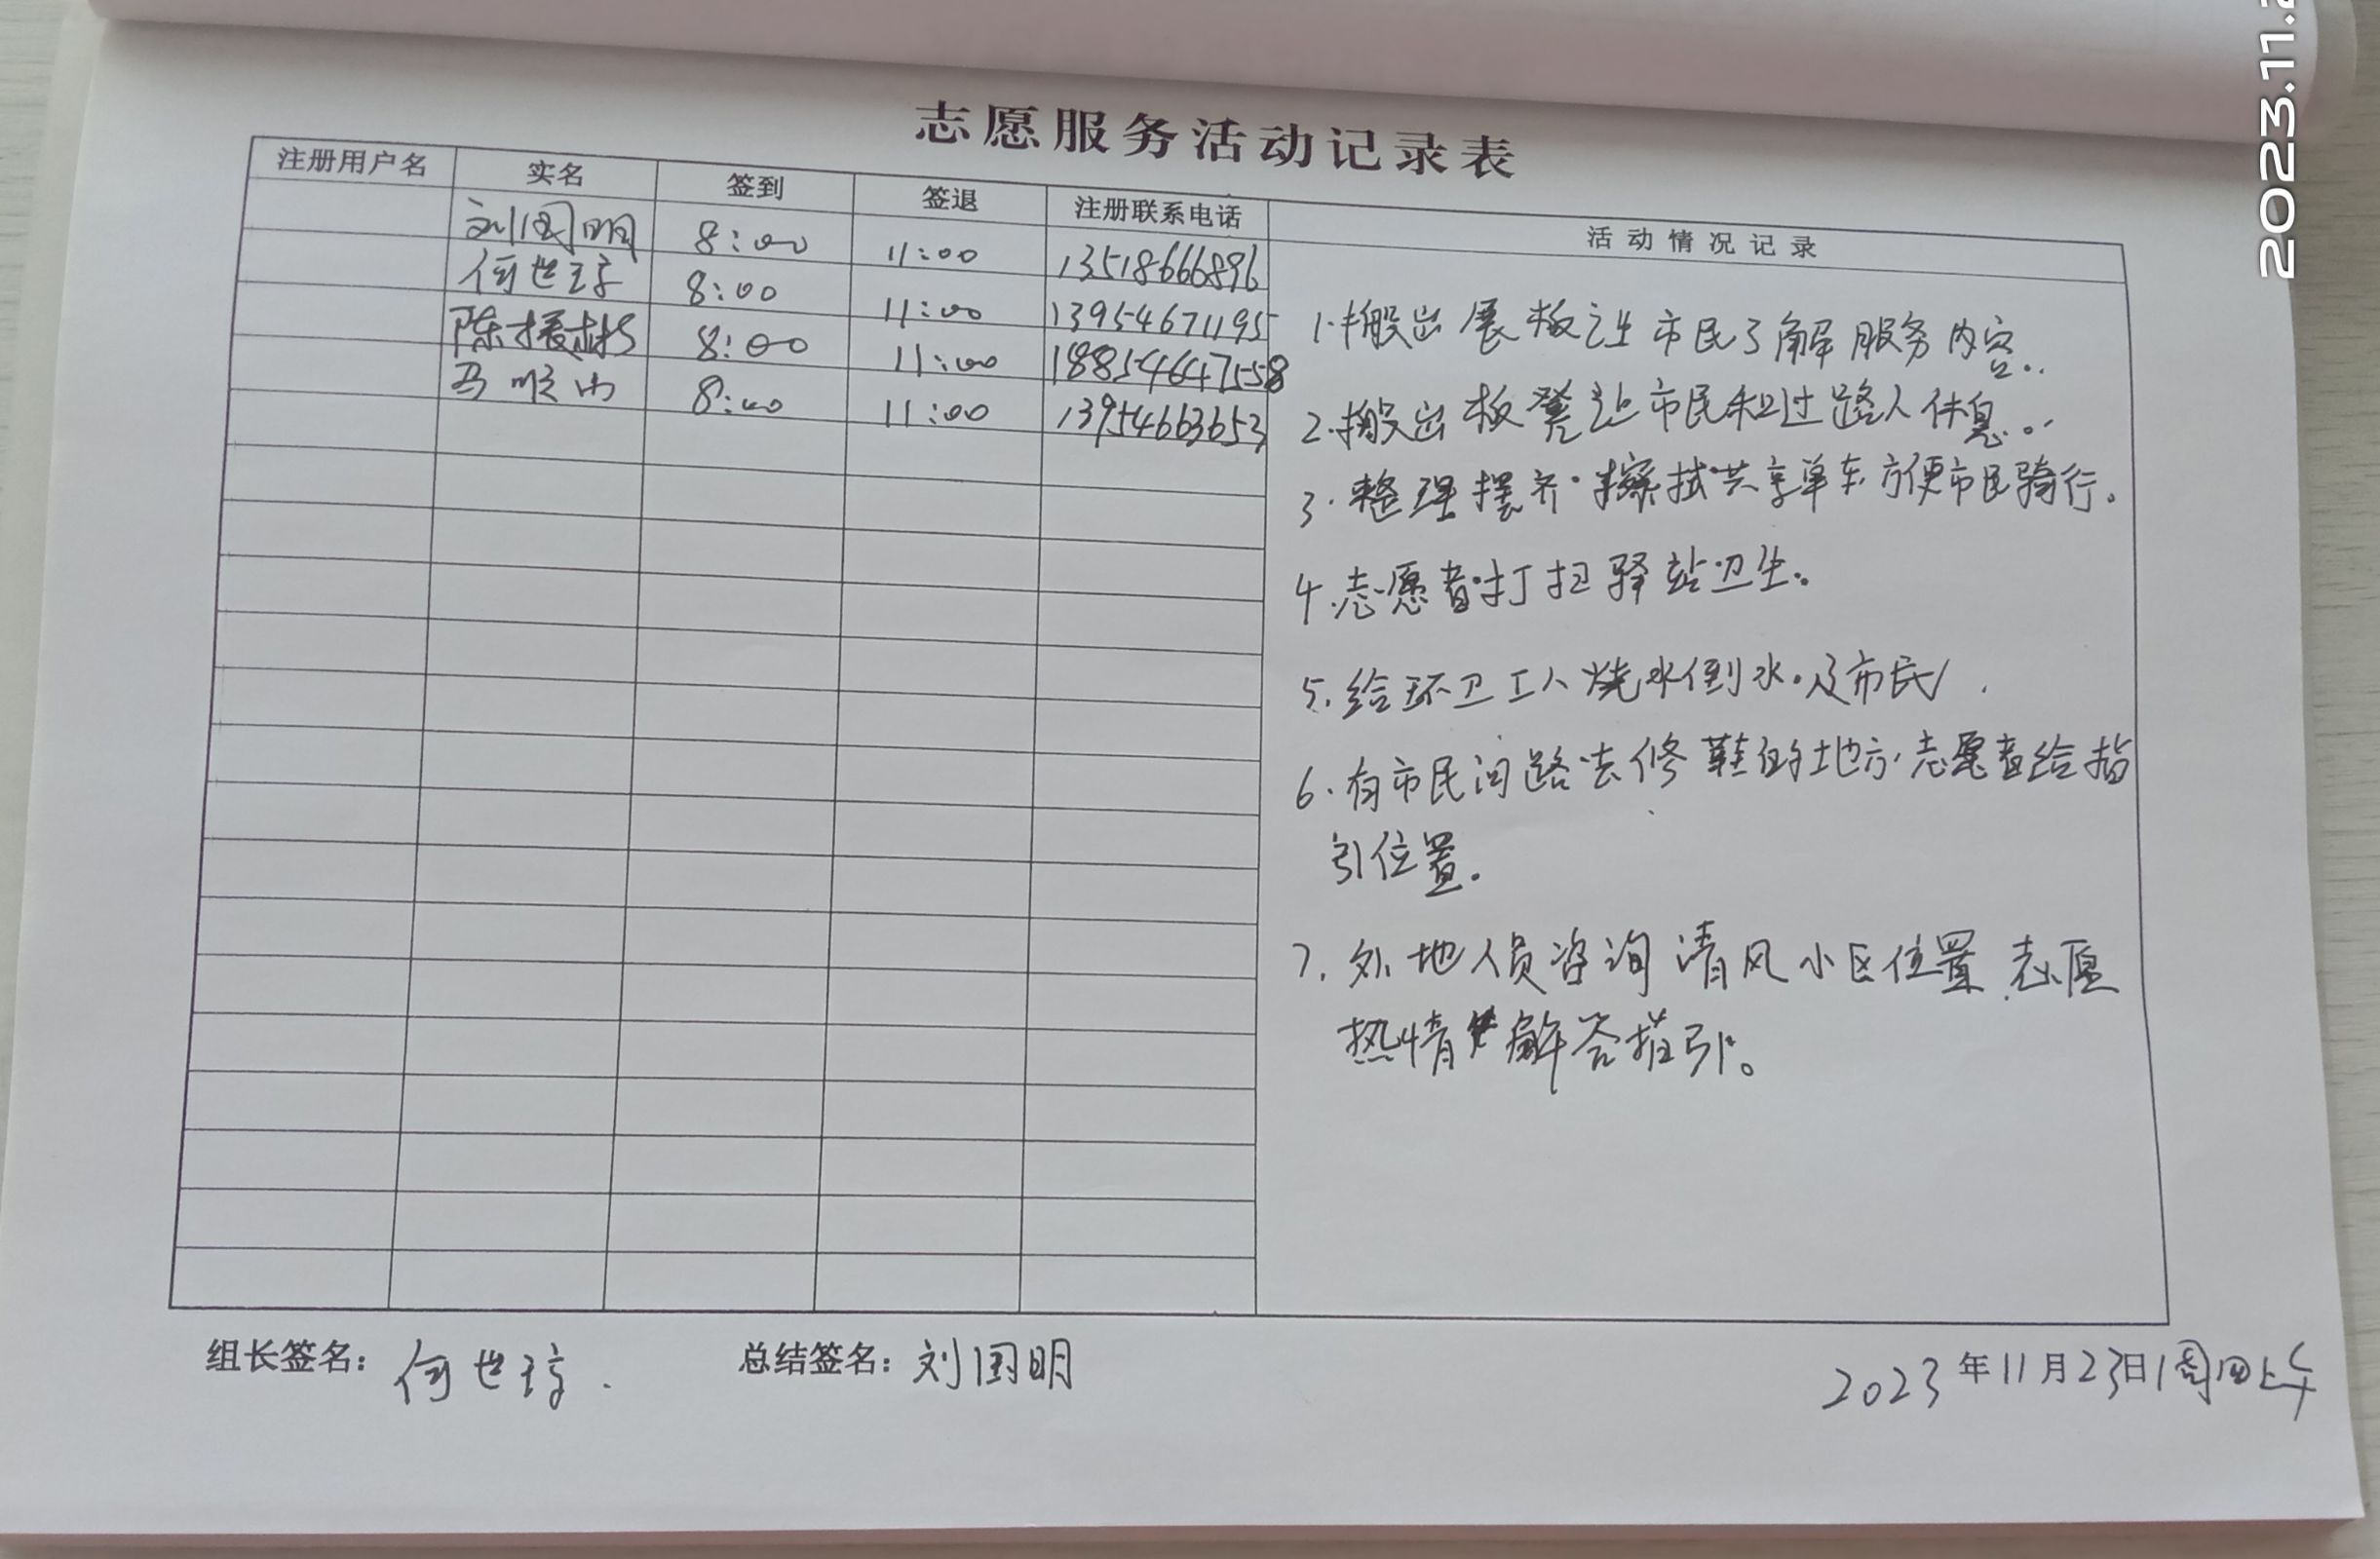 2023.11.2
志愿服务活动记录表
注册用户名 实名 签到 签退 注册联系电话 活动情况记录
刘国明 8:00 11:00 13518666896
何世 8:00 11:00 13954671195
陈 8:00 11:00 18854647558
马顺 8:00 11:00 13954663653
1.搬出展板让市民了解服务内容..
2.搬出板凳让市民和过路人休息..
3.整理摆齐.擦拭共享单车方便市民骑行。
4.志愿者打扫驿站卫生。
5.给环卫工人烧水倒水.及市民.
6.有市民问路去修鞋的地方.志愿者给指
引位置.
7.外地人员咨询清风小区位置.志愿
热情解答指引。
组长签名: 何世 总结签名: 刘国明 2023年11月23日周四上午